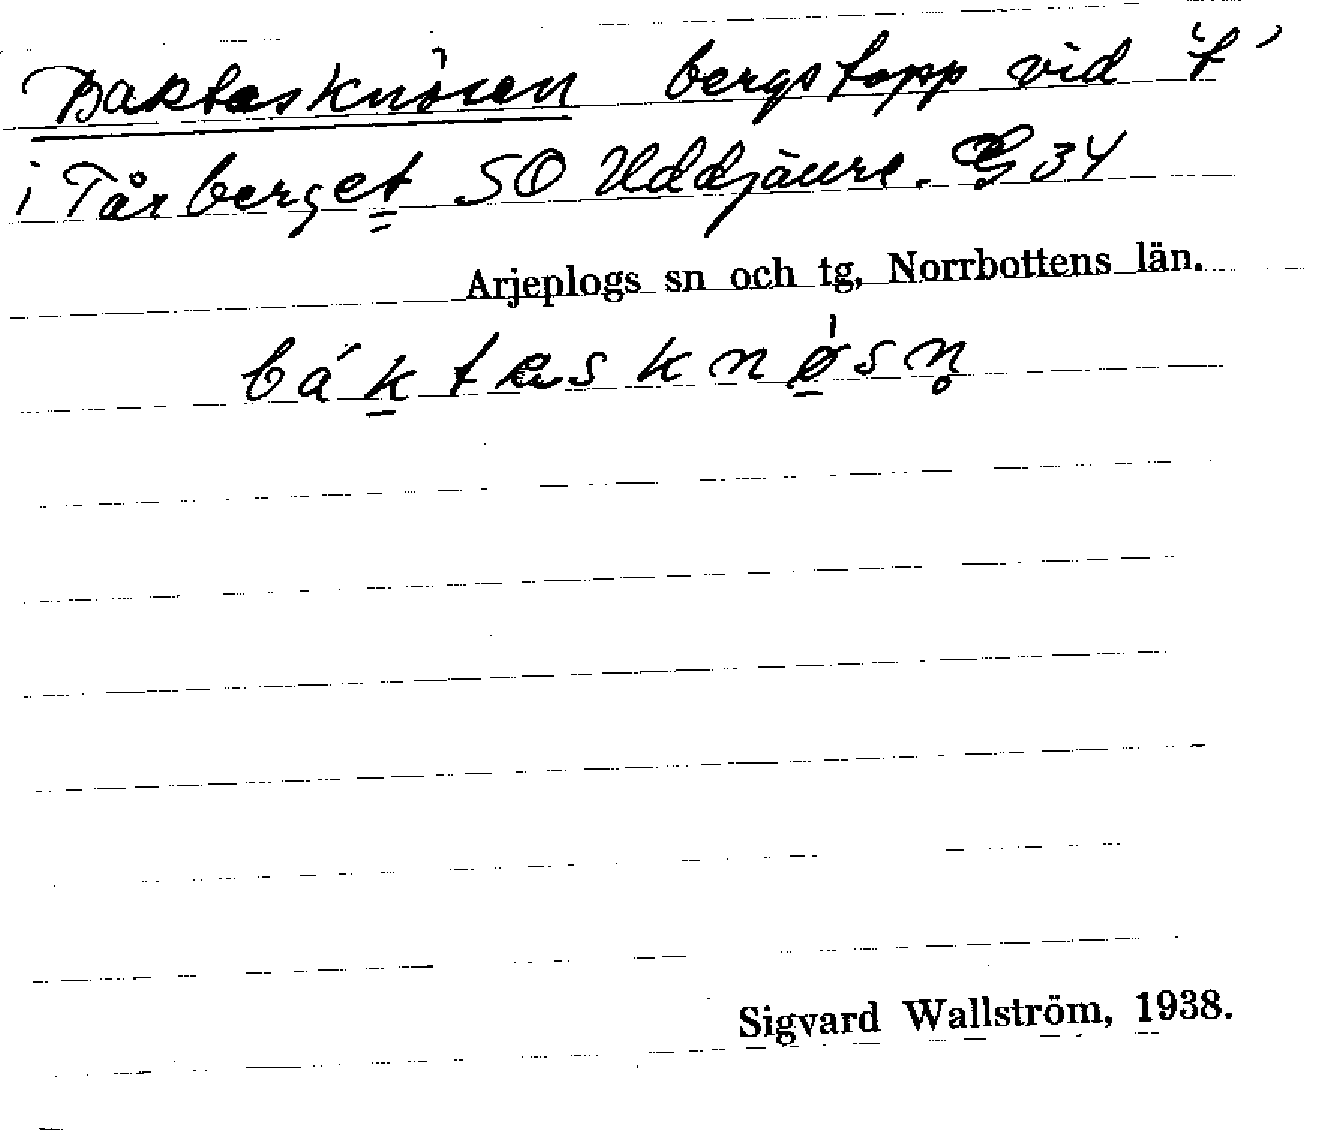 Baktesknösen bergstopp vid 't'
i Tårberget SO Uddjaure. G34
Arjeplogs sn och tg, Norrbottens län.
báktesknøsn̥
Sigvard Wallström, 1938.